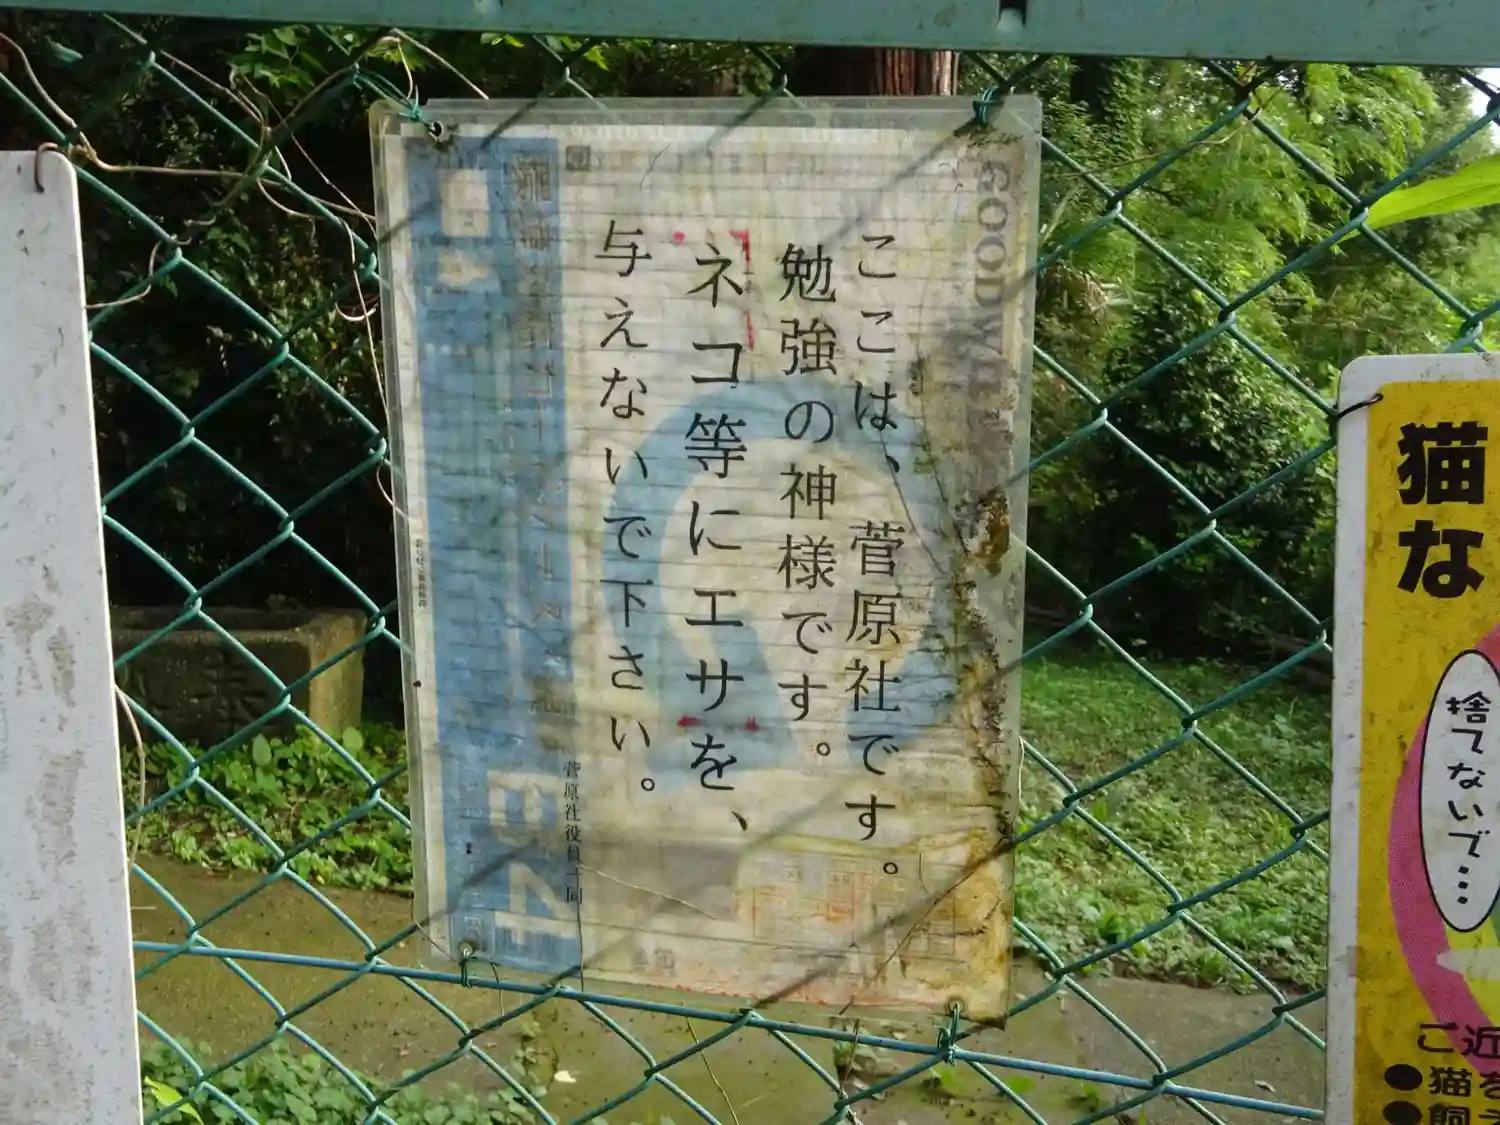 ここは、菅原社です。
勉強の神様です。
ネコ等にエサを、
与えないで下さい。
菅原社役員一同
GOODWILL
B4
猫
な
捨てないで…
ご近
●猫を
●飼え